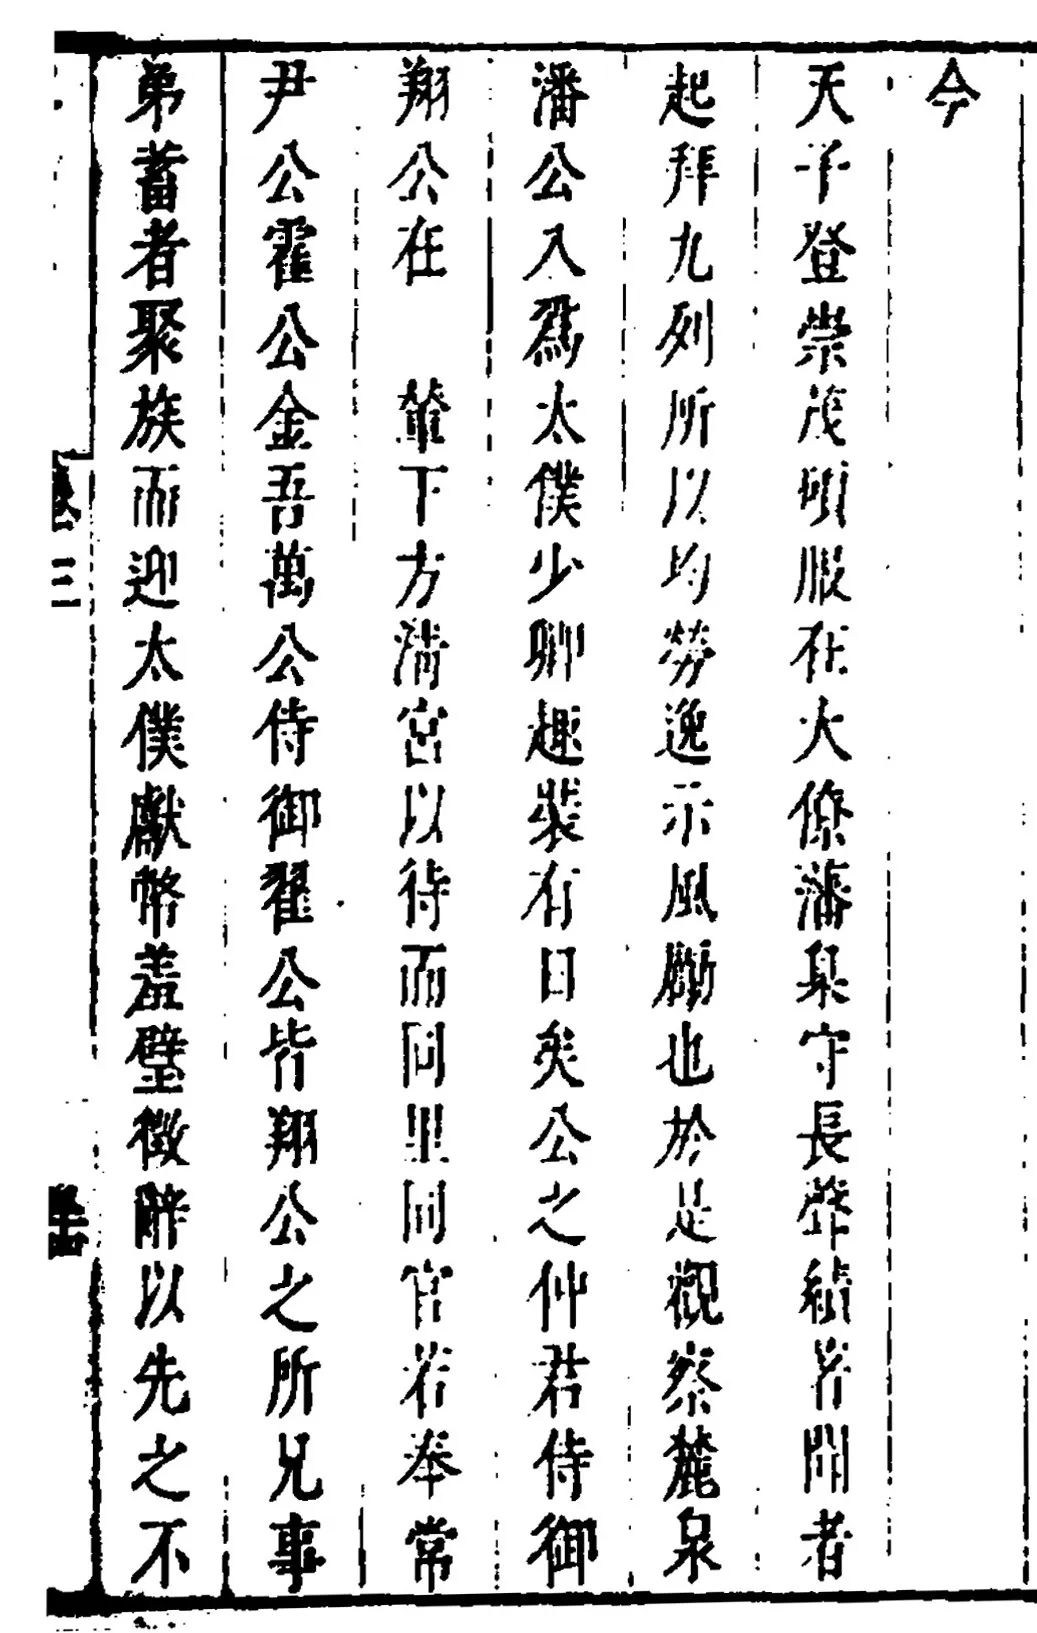 今
天子登崇茂明服在大僚藩臬守長聲績著聞者
起拜九列所以均勞逸示風勵也於是觀察麓泉
潘公入爲太僕少卿趣裝有日矣公之仲君侍御
翔公在 輦下方清宮以待而同里同官若奉常
尹公霍公金吾萬公侍御翟公皆翔公之所兄事
弟蓄者聚族而迎太僕獻幣羞璧徵辭以先之不
卷三